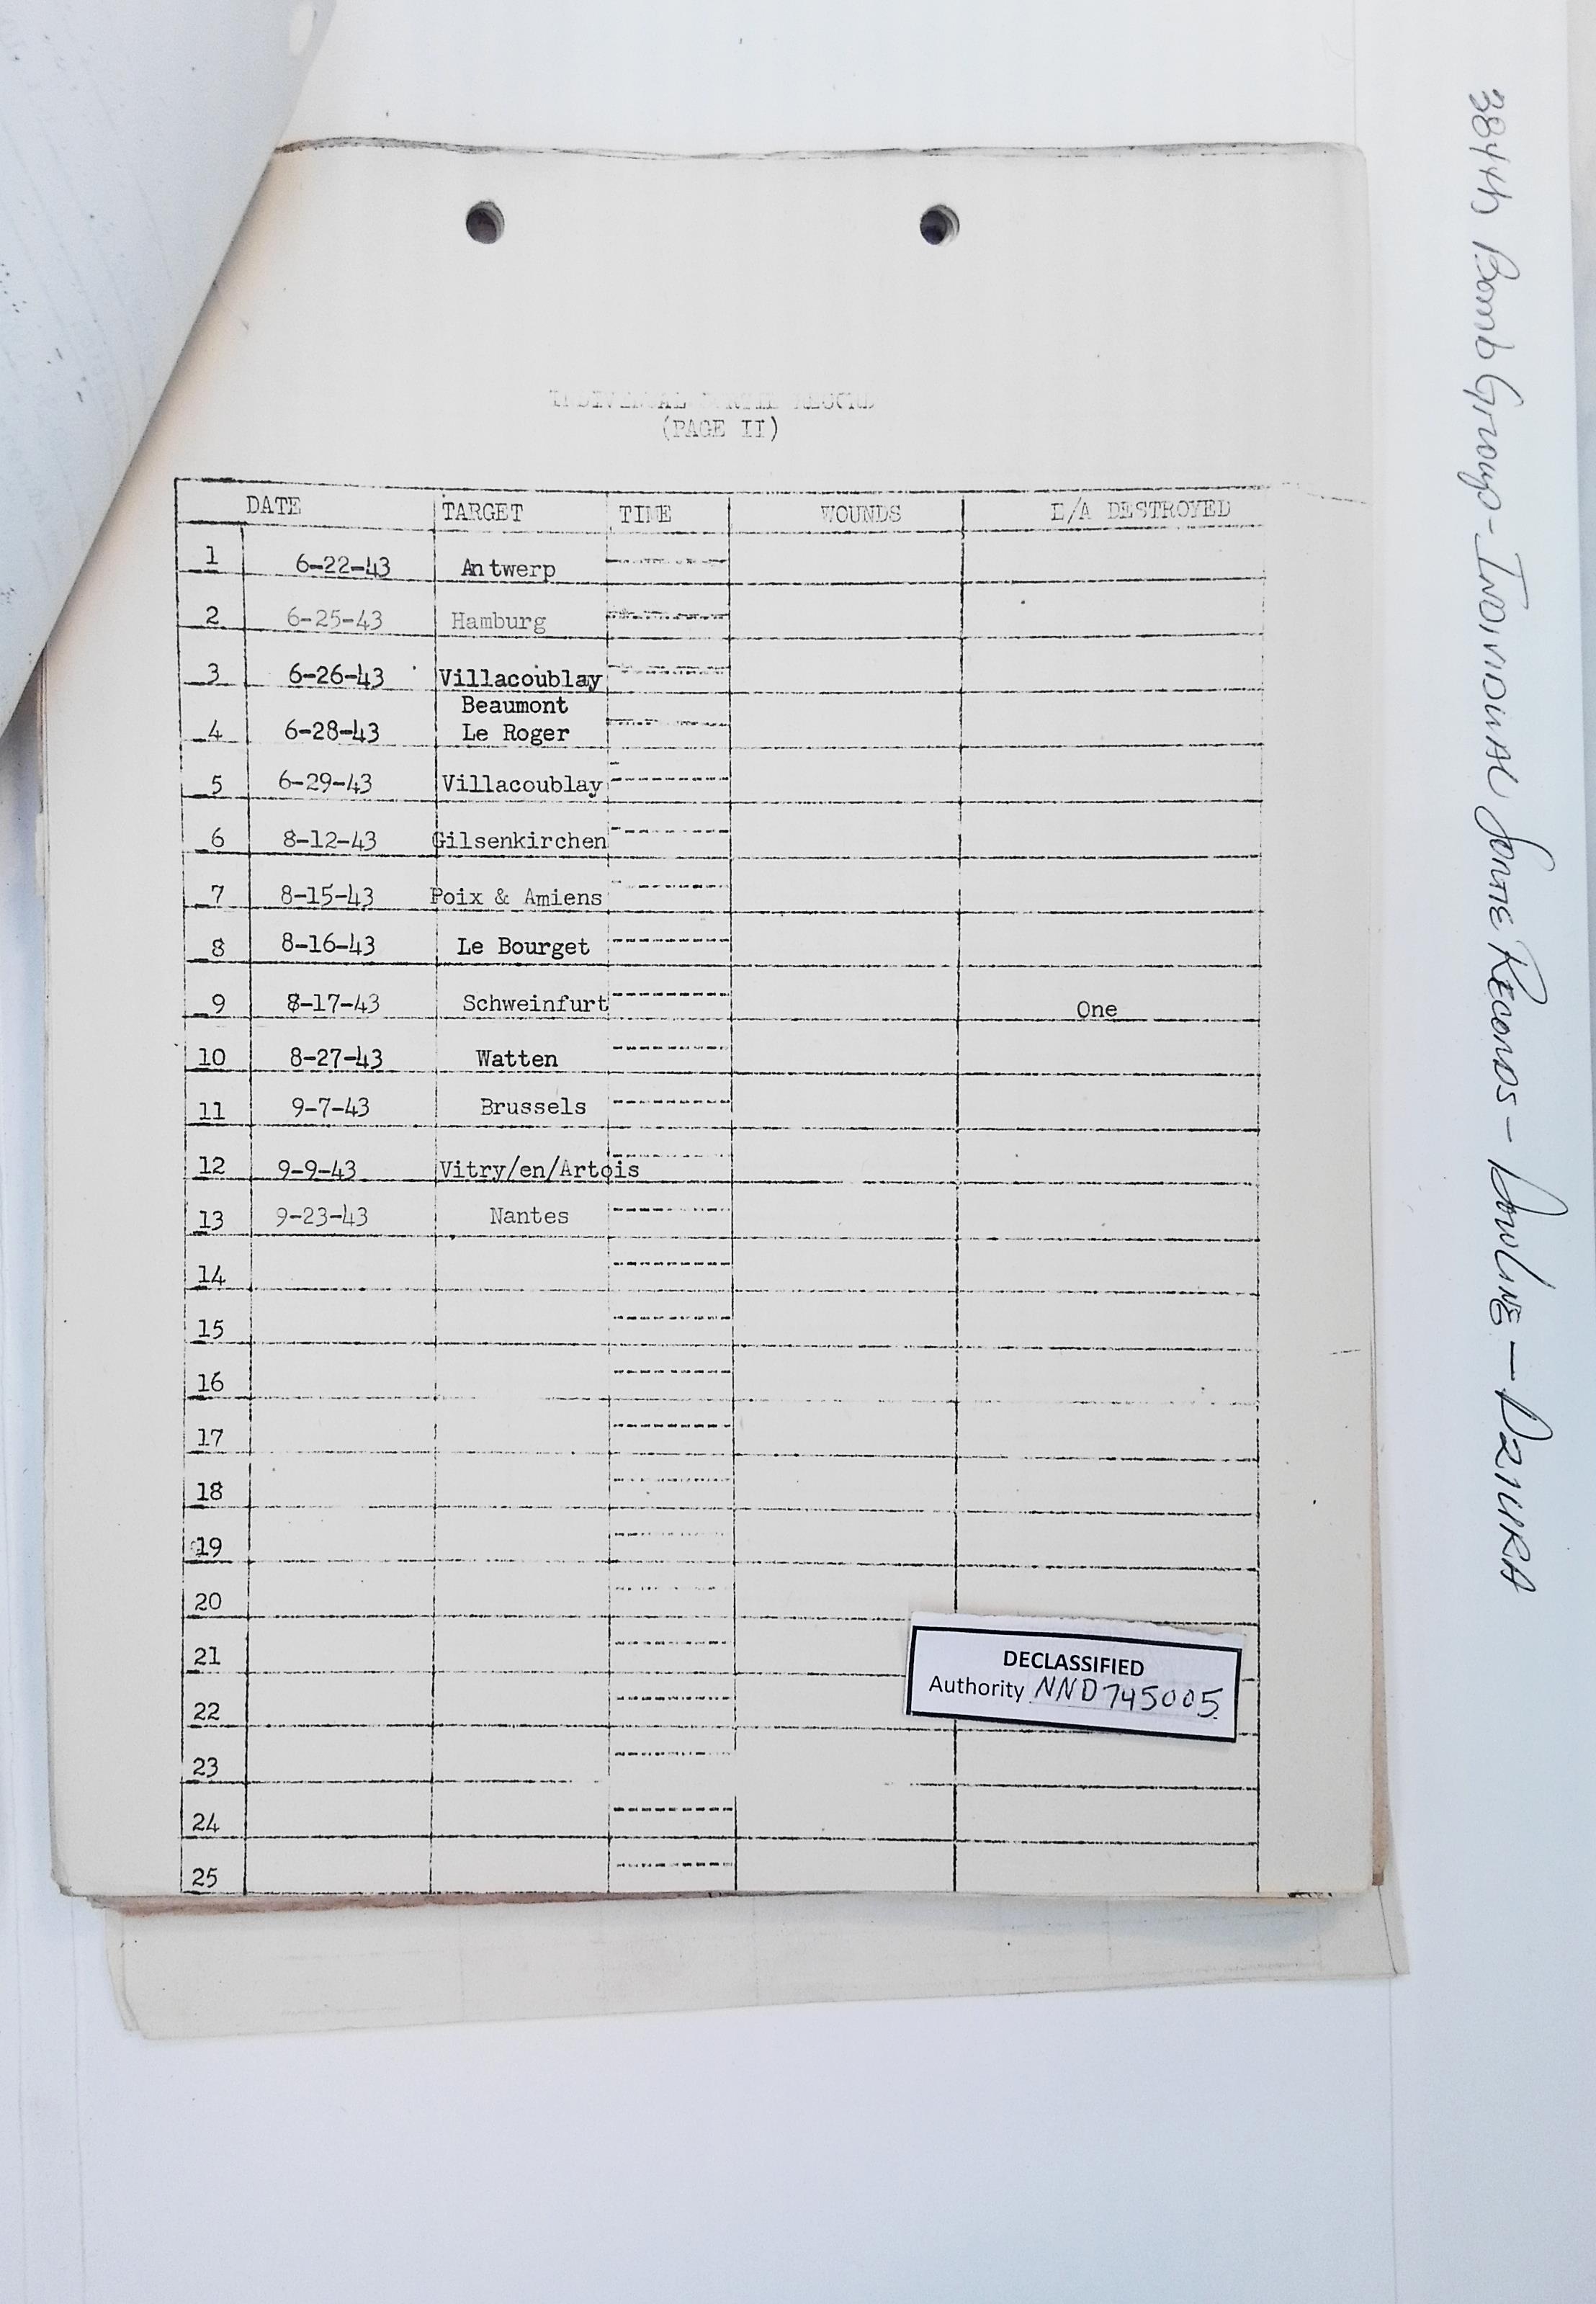 INDIVIDUAL SORTIE RECORD
(PAGE II)
DATE TARGET TIME WOUNDS E/A DESTROYED
1 6-22-43 Antwerp
2 6-25-43 Hamburg
3 6-26-43 Villacoublay
Beaumont
4 6-28-43 Le Roger
5 6-29-43 Villacoublay
6 8-12-43 Gilsenkirchen
7 8-15-43 Poix & Amiens
8 8-16-43 Le Bourget
9 8-17-43 Schweinfurt One
10 8-27-43 Watten
11 9-7-43 Brussels
12 9-9-43 Vitry/en/Artois
13 9-23-43 Nantes
14
15
16
17
18
19
20
21
22
23
24
25
DECLASSIFIED
Authority NND745005
384th Bomb Group - INDIVIDUAL SORTIE RECORDS - DOWLING - DZIURA